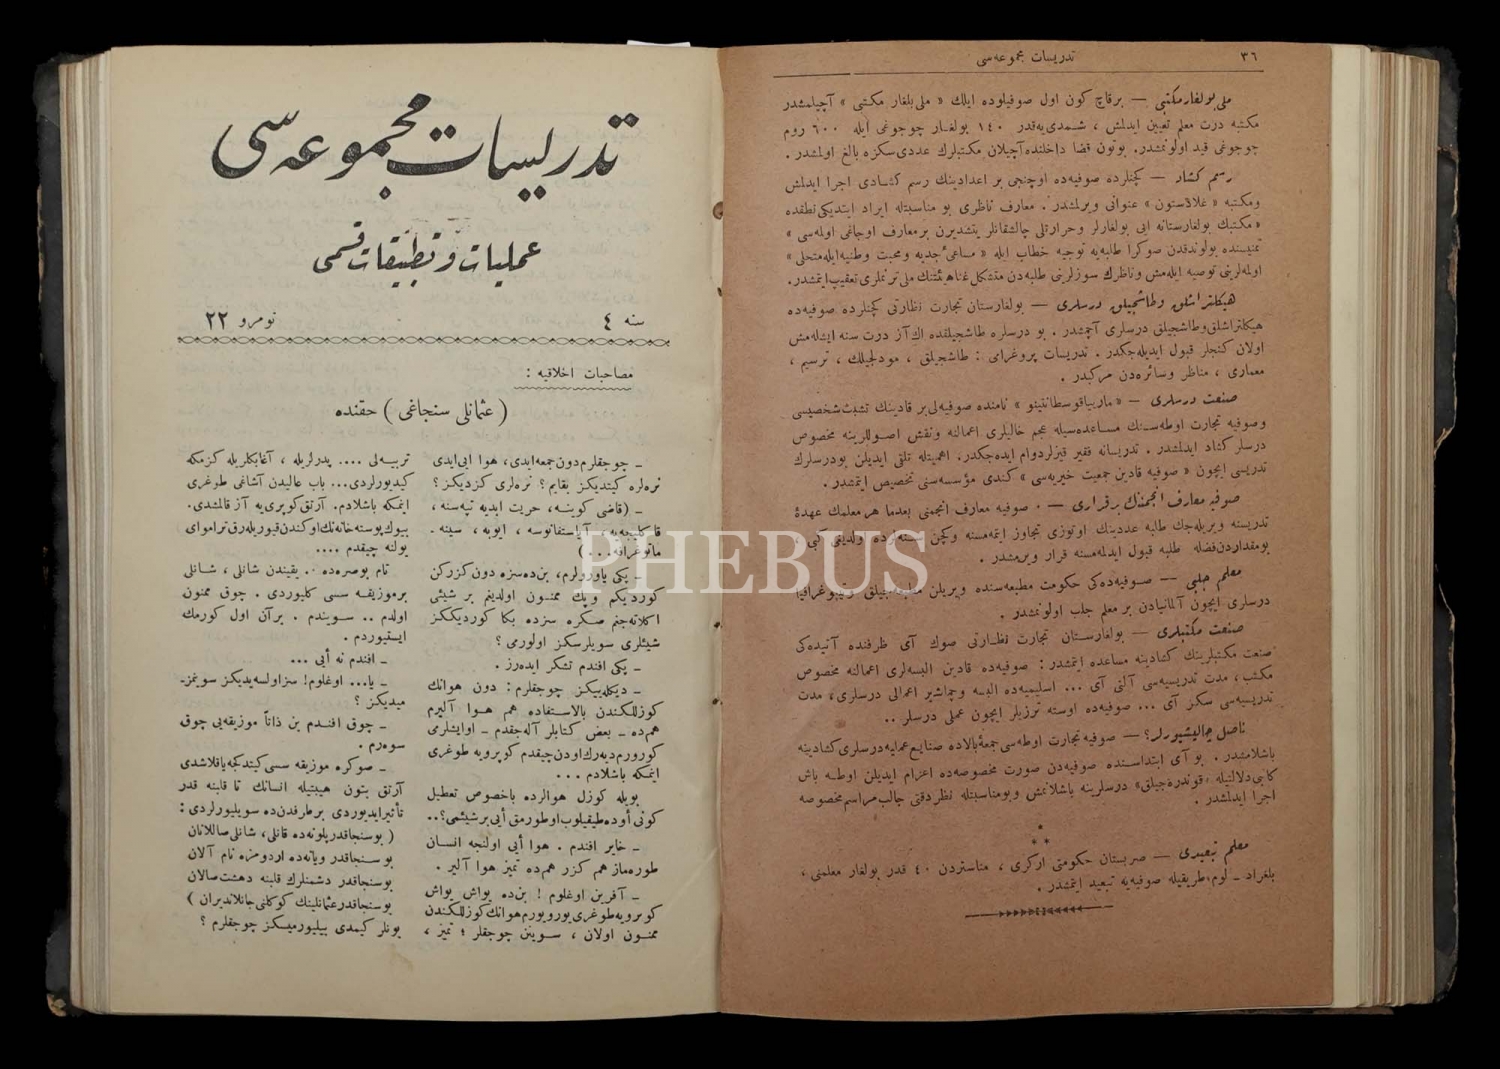 ٣٦
تدریسات مجموعه‌سی
ملی بولغار مکتبی — برقاچ کون اول صوفیلوده ایلك « ملی بلغار مکتبی » آچیلمشدر
مکتبه درت معلم تعیین ایدلمش ، شمدی‌یه‌قدر ١٤٠ بولغار چوجوغی ایله ٦٠٠ روم
چوجوغی قید اولونمشدر. بوتون قضا داخلنده آچیلان مکتبلرك عددی سکزه بالغ اولمشدر .
رسم کشاد — کچنلرده صوفیه‌ده اوچنجی بر اعدادینك رسم کشادی اجرا ایدلمش
ومکتبه « غلادستون » عنوانی ویرلمشدر . معارف ناظری بو مناسبتله ایراد ایتدیکی نطقده
« مکتبك بولغارستانه ایی بولغارلر وحرارتلی چالشقانلر یتشدیرن بر معارف اوجاغی اولمه‌سی »
تمنیسنده بولوندقدن صوکرا طلبه‌یه توجیه خطاب ایله « مساعئ جدیه و محبت وطنیه ایله متحلی »
اولمه‌لرینی توصیه ایله‌مش وناظرك سوزلرینی طلبه‌دن متشکل غنا هیئتنك ملی ترنملری تعقیب ایتمشدر.
هیکلتراشلق وطاشجیلق درسلری — بولغارستان تجارت نظارتی کچنلرده صوفیه‌ده
هیکلتراشلق وطاشجیلق درسلری آچمشدر . بو درسلره طاشجیلقده اك آز درت سنه ایشله‌مش
اولان کنجلر قبول ایدیله‌جکدر . تدریسات پروغرامی : طاشجیلق ، مودلجیلك ، ترسیم ،
معماری ، مناظر وسائره‌دن مرکبدر .
صنعت درسلری — « ماریا قوسطانتینو » نامنده صوفیه‌لی بر قادینك تشبث شخصیسی
وصوفیه تجارت اوطه‌سنك مساعده‌سیله عجم خالیلری اعمالنه ونقش اصوللرینه مخصوص
درسلر کشاد ایدلمشدر . تدریسانه فقیر قیزلر دوام ایده‌جکدر. اهمیتله تلقی ایدیلن بو درسلرك
تدریسی ایچون « صوفیه قادین جمعیت خیریه‌سی » کندی مؤسسه‌سنی تخصیص ایتمشدر .
صوفیه معارف انجمننك بر قراری — صوفیه معارف انجمنی بعدما هر معلمك عهدهٔ
تدریسنه ویریله‌جك طلبه عددینك اوتوزی تجاوز ایتمه‌مسنه وکچن سنه‌لرده اولدیغی کبی ،
بومقداردن‌فضله طلبه قبول ایدلمه‌مسنه قرار ویرمشدر .
معلم جلبی — صوفیه‌ده‌کی حکومت مطبعه‌سنده ویریلن وتیپوغرافیا
درسلری ایچون آلمانیادن بر معلم جلب اولونمشدر .
صنعت مکتبلری — بولغارستان تجارت نظارتی صوك آی ظرفنده آتیده‌کی
صنعت مکتبلرینك کشادینه مساعده ایتمشدر : صوفیه‌ده قادین البسه‌لری اعمالنه مخصوص
مکتب ، مدت تدریسیه‌سی آلتی آی ... اسلیمیه‌ده البسه وچماشیر اعمالی درسلری، مدت
تدریسیه‌سی سکز آی ... صوفیه‌ده اوسته ترزیلر ایچون عملی درسلر ..
ناصل چالیشیورلر؟ — صوفیه تجارت اوطه‌سی جمعهٔ بالاده صنایع عملیه درسلری کشادینه
باشلامشدر . بو آی ابتداسنده صوفیه‌دن صورت مخصوصه‌ده اعزام ایدیلن اوطه باش
کاتبی دلالتیله « قوندره‌جیلق » درسلرینه باشلانمش وبومناسبتله نظر دقتی جالب مراسم مخصوصه
اجرا ایدلمشدر .
معلم تبعیدی — صربستان حکومتی ارکری ، مناستردن ٤٠ قدر بولغار معلمنی ،
بلغراد ـ لوم طریقیله صوفیه‌یه تبعید ایتمشدر .
تدریسات مجموعه‌سی
عملیات و تطبیقات قسمی
سنه ٤
نومرو ٢٢
مصاحبات اخلاقیه :
( عثمانلی سنجاغی ) حقنده
ـ چوجقلرم دون جمعه ایدی، هوا ایی ایدی
نره‌لره کیتدیکز بقایم ؟ نره‌لری کزدیکز ؟
ـ (قاضی کوینه، حریت ابدیه تپه‌سنه ،
، آیاستفانوسه ، ایوبه ، سینه ـ
ماتوغرافه . . . )
ـ پکی یاورولرم، بن‌ده سزه دون کزرکن
کوردیکم وپك ممنون اولدیغم بر شیئی
اکلاته‌جغم صکره سزده بکا کوردیککز
شیئلری سویلرسکز اولورمی ؟
ـ پکی افندم تشکر ایده‌رز .
ـ دیکله‌ییکز چوجقلرم : دون هوانك
کوزللکندن بالاستفاده هم هوا آلیرم
هم‌ده ـ بعض کتابلر آله‌جقدم ـ اوایشلرمی
کورورم دیه‌رك اودن چیقدم کوپرویه طوغری
ایتمکه باشلادم ...
بویله کوزل هوالرده باخصوص تعطیل
کونی أوده طیقیلوب اوطورمق أیی بر شیئمی؟..
ـ خایر افندم . هوا أیی اولنجه انسان
طوره‌ماز هم کزر هم‌ده تمیز هوا آلیر .
ـ آفرین اوغلوم ! بن‌ده یواش یواش
کوپرویه طوغری یورویورم هوانك کوزللکندن
ممنون اولان ، سوینن چوجقلر ؛ تمیز ،
تربیه‌لی .... پدرلریله ، آغابکلریله کزمکه
کیدیورلردی... باب عالیدن آشاغی طوغری
ایتمکه باشلادم. آرتق کوپری‌یه آز قالمشدی.
بیوك پوسته‌خانه‌نك اوکندن قیوریله‌رق تراموای
یولنه چیقدم ....
تام بوصره‌ده .. یقیندن شانلی ، شانلی
بر موزیقه سسی کلیوردی . چوق ممنون
اولدم .. سویندم . برآن اول کورمك
ایستیوردم .
ـ افندم نه أیی ...
ـ یا... اوغلوم! سز اولسه‌یدیکز سوینمز ـ
میدیکز ؟
ـ چوق افندم بن ذاتاً موزیقه‌یی چوق
سوه‌رم .
ـ صوکره موزیقه سسی کیتدکجه یاقلاشدی
آرتق بتون هیبتیله انسانك تا قلبنه قدر
تأثیر ایدیوردی بر طرفدن ده سویلیورلردی :
( بو سنجاقدر پلونه‌ده قانلی، شانلی صاللانان
بو سنجاقدر ویانه‌ده اردومزه نام آلان
بو سنجاقدر دشمنلرك قلبنه دهشت صالان
بو سنجاقدر عثمانلینك کوکلنی جانلاندیران )
بونلر کیمدی بیلیورمیسکز چوجقلرم ؟
PHEBUS